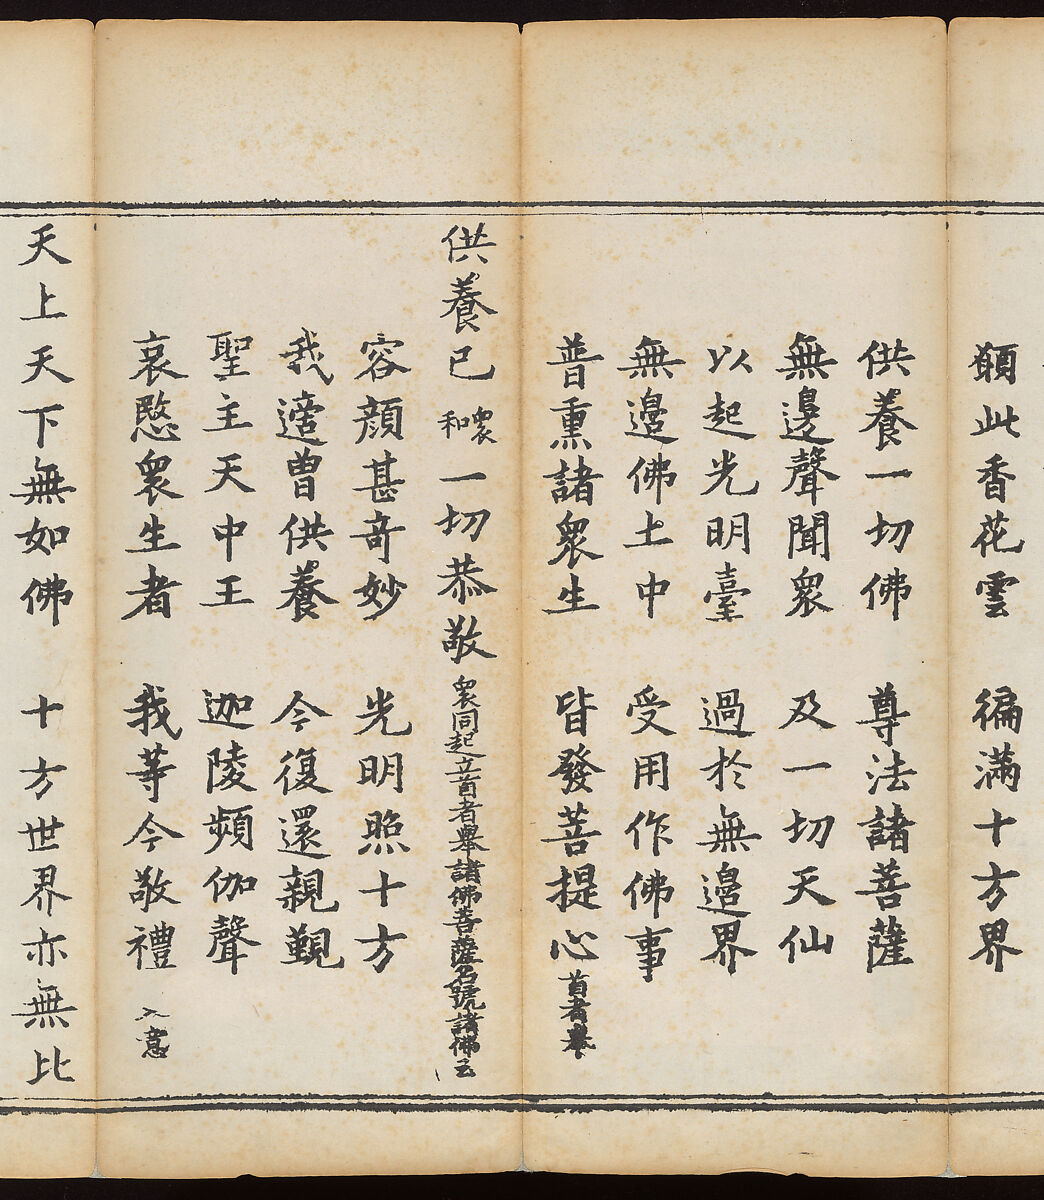 願此香花雲　徧滿十方界
供養一切佛　尊法諸菩薩
無邊聲聞衆　及一切天仙
以起光明臺　過於無邊界
無邊佛土中　受用作佛事
普熏諸衆生　皆發菩提心 首者舉
供養已 衆和 一切恭敬 衆同起立首者舉諸佛菩薩名號諸佛云
容顔甚奇妙　光明照十方
我適曾供養　今復還親覲
聖主天中王　迦陵頻伽聲
哀愍衆生者　我等今敬禮 入意
天上天下無如佛　十方世界亦無比